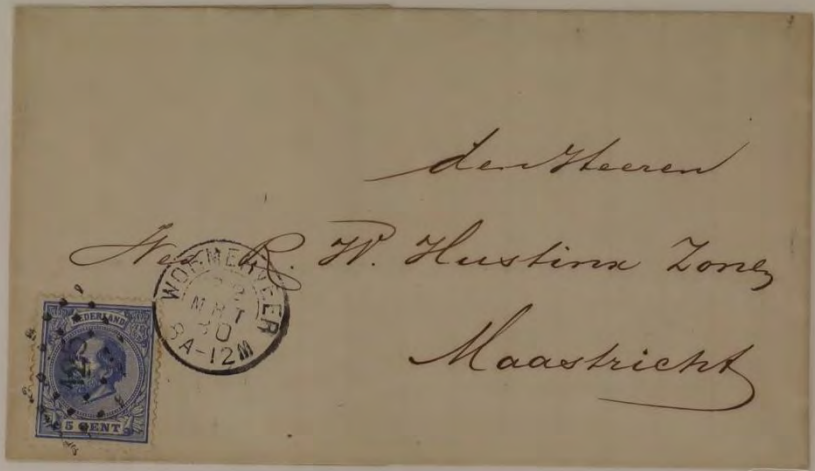 den Heeren
Wed R. W. Hustinx Zonen
Maastricht
WORMERVEER
MRT
80
8A-12M
NEDERLAND
5 CENT